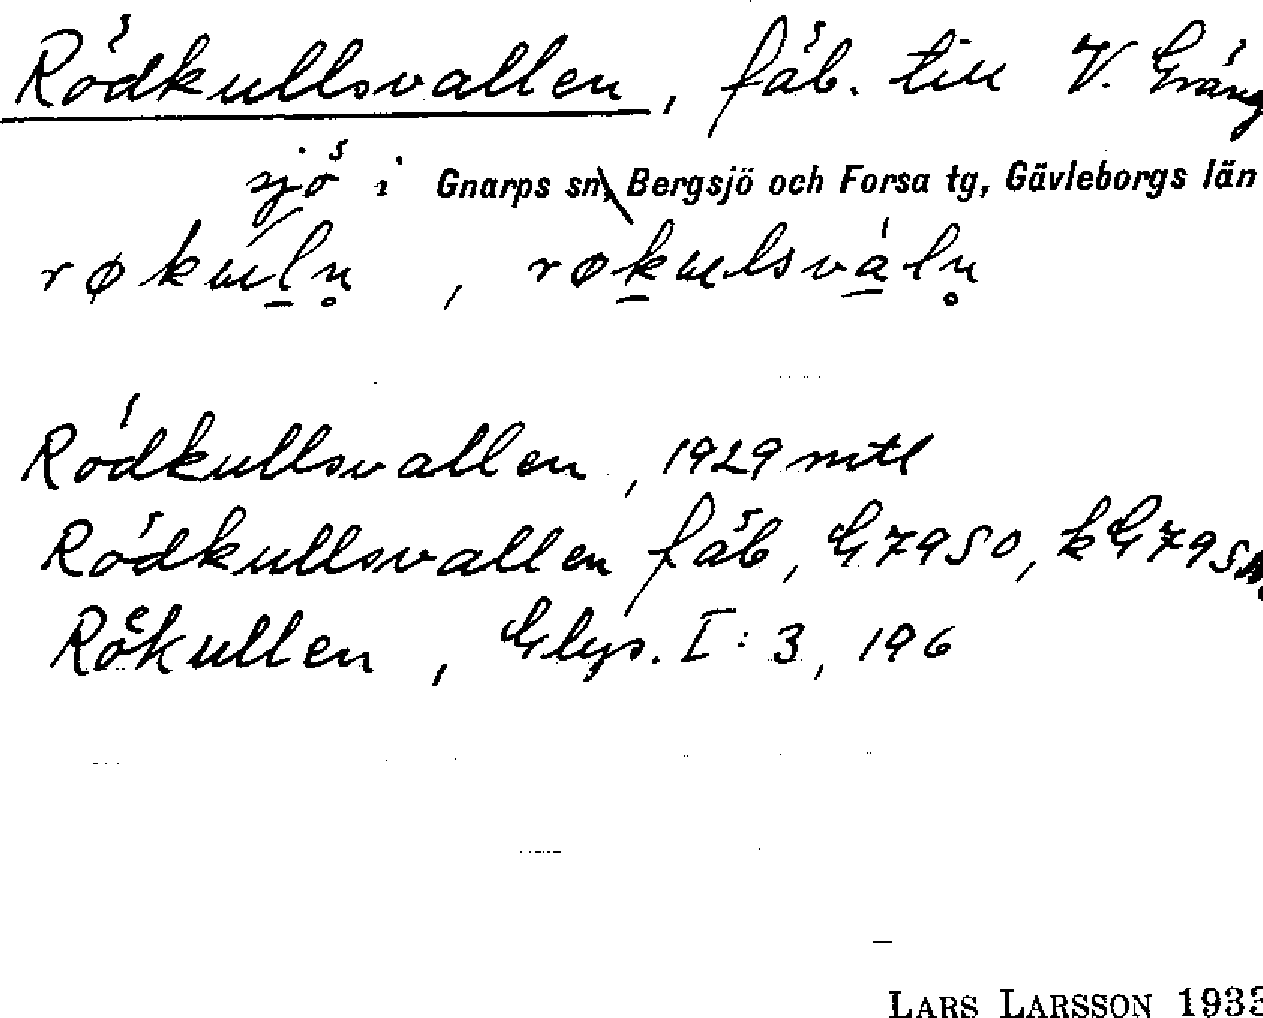 Rödkullsvallen, fäb. till V. Gräng
sjö i Gnarps sn, Bergsjö och Forsa tg, Gävleborgs län
røkulṇ, røkulsválṇ
Rödkullsvallen, 1929 mtl
Rödkullsvallen fäb, G7950, kG795
Rökullen, Glys. I:3, 196
LARS LARSSON 1933